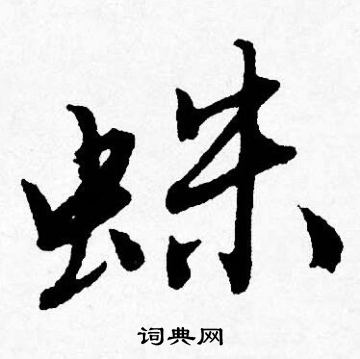 蛛
词典网